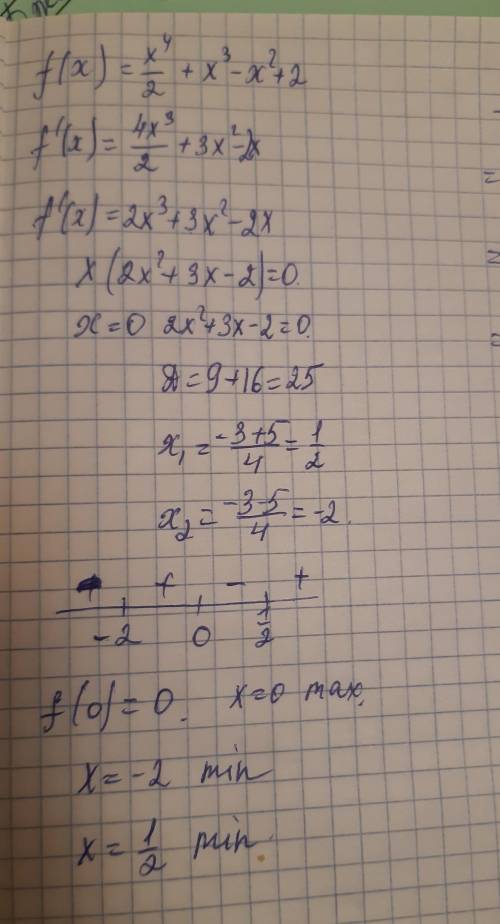 f(x) = x⁴/2 + x³ - x² + 2
f'(x) = 4x³/2 + 3x² - 2x
f'(x) = 2x³ + 3x² - 2x
x(2x² + 3x - 2) = 0.
x = 0 2x² + 3x - 2 = 0.
D = 9 + 16 = 25
x₁ = -3+5/4 = 1/2
x₂ = -3-5/4 = -2.
+ - +
-2 0 1/2
f(0) = 0. x=0 max.
x = -2 min
x = 1/2 min.